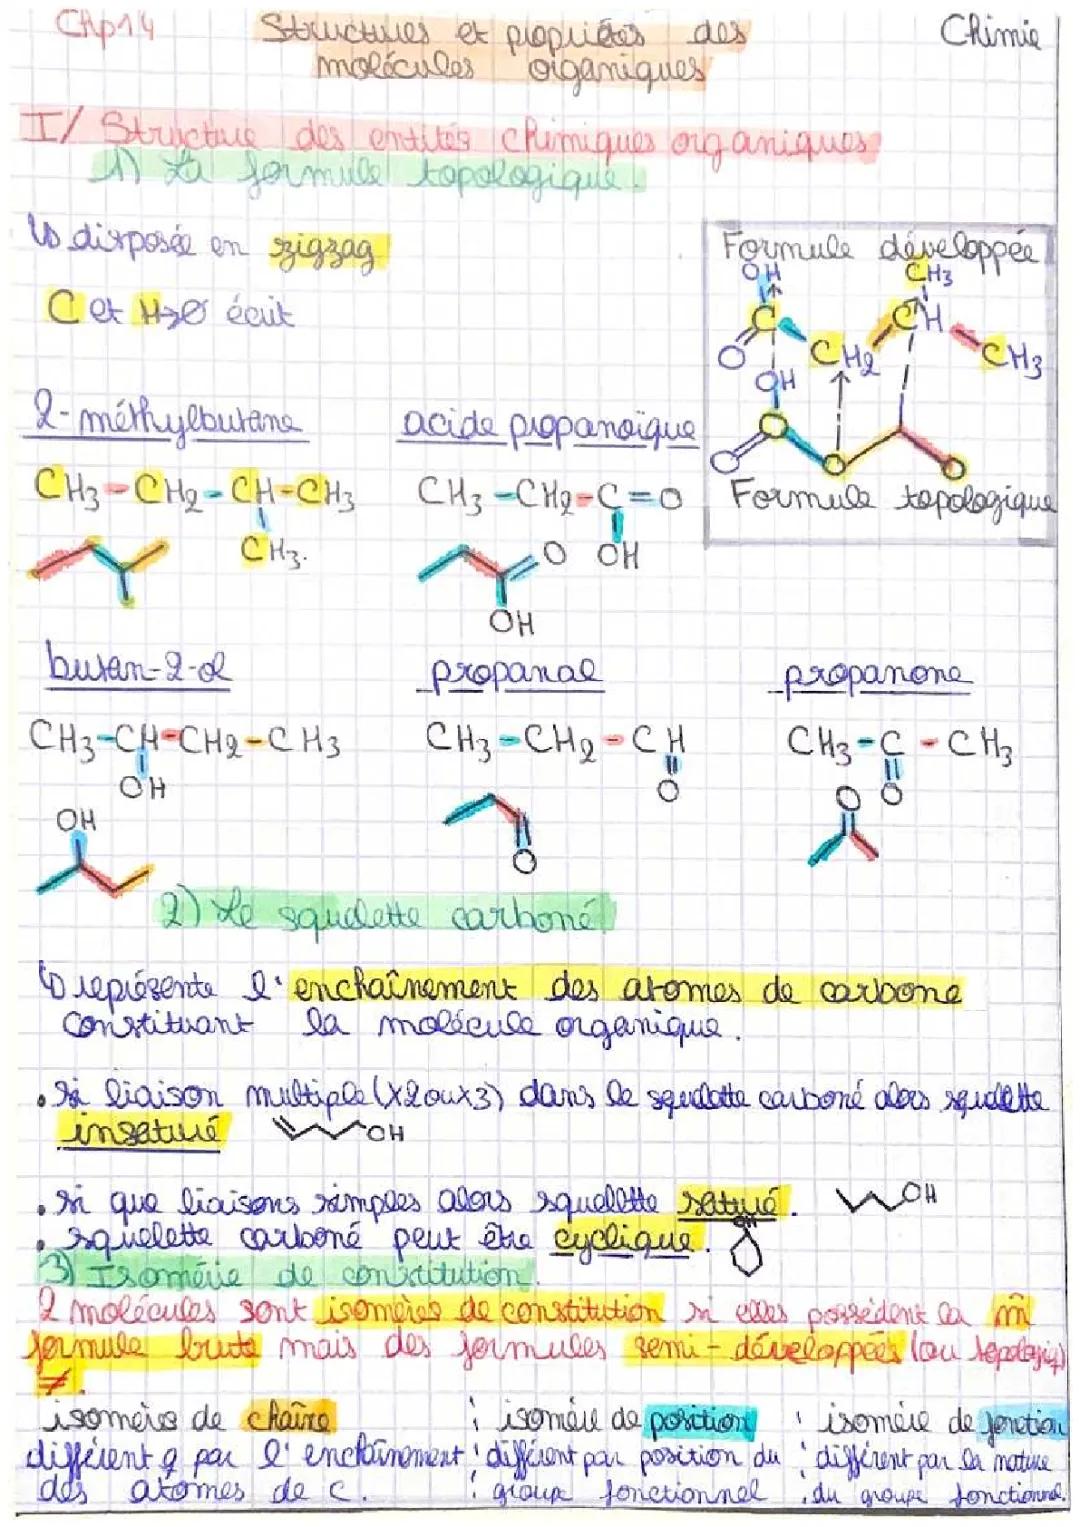 Chp14 Structures et propriétés des Chimie
molécules organiques
I/ Structure des entités chimiques organiques
1) La formule topologique.
↳ disposée en zigzag
C et H → Ø écrit
Formule développée
OH CH3
C CH
O CH2 CH3
OH
O
Formule topologique
2-méthylbutane acide propanoïque
CH3-CH2-CH-CH3 CH3-CH2-C=O
CH3. OH
O
OH
butan-2-ol propanal propanone
CH3-CH-CH2-CH3 CH3-CH2-CH CH3-C-CH3
OH O O
OH O O
2) Le squelette carboné
↳ représente l'enchaînement des atomes de carbone
constituant la molécule organique.
• si liaison multiple (x2 ou x3) dans le squelette carboné alors squelette
insaturé OH
• si que liaisons simples alors squelette saturé. OH
• squelette carboné peut être cyclique. OH
3) Isomérie de constitution.
2 molécules sont isomères de constitution si elles possèdent la m̂
formule brute mais des formules semi-développées (ou topologiq)
≠.
isomères de chaîne isomère de position isomère de fonction
différent q par l'enchaînement différent par position du différent par la nature
des atomes de C. groupe fonctionnel du groupe fonctionnel.